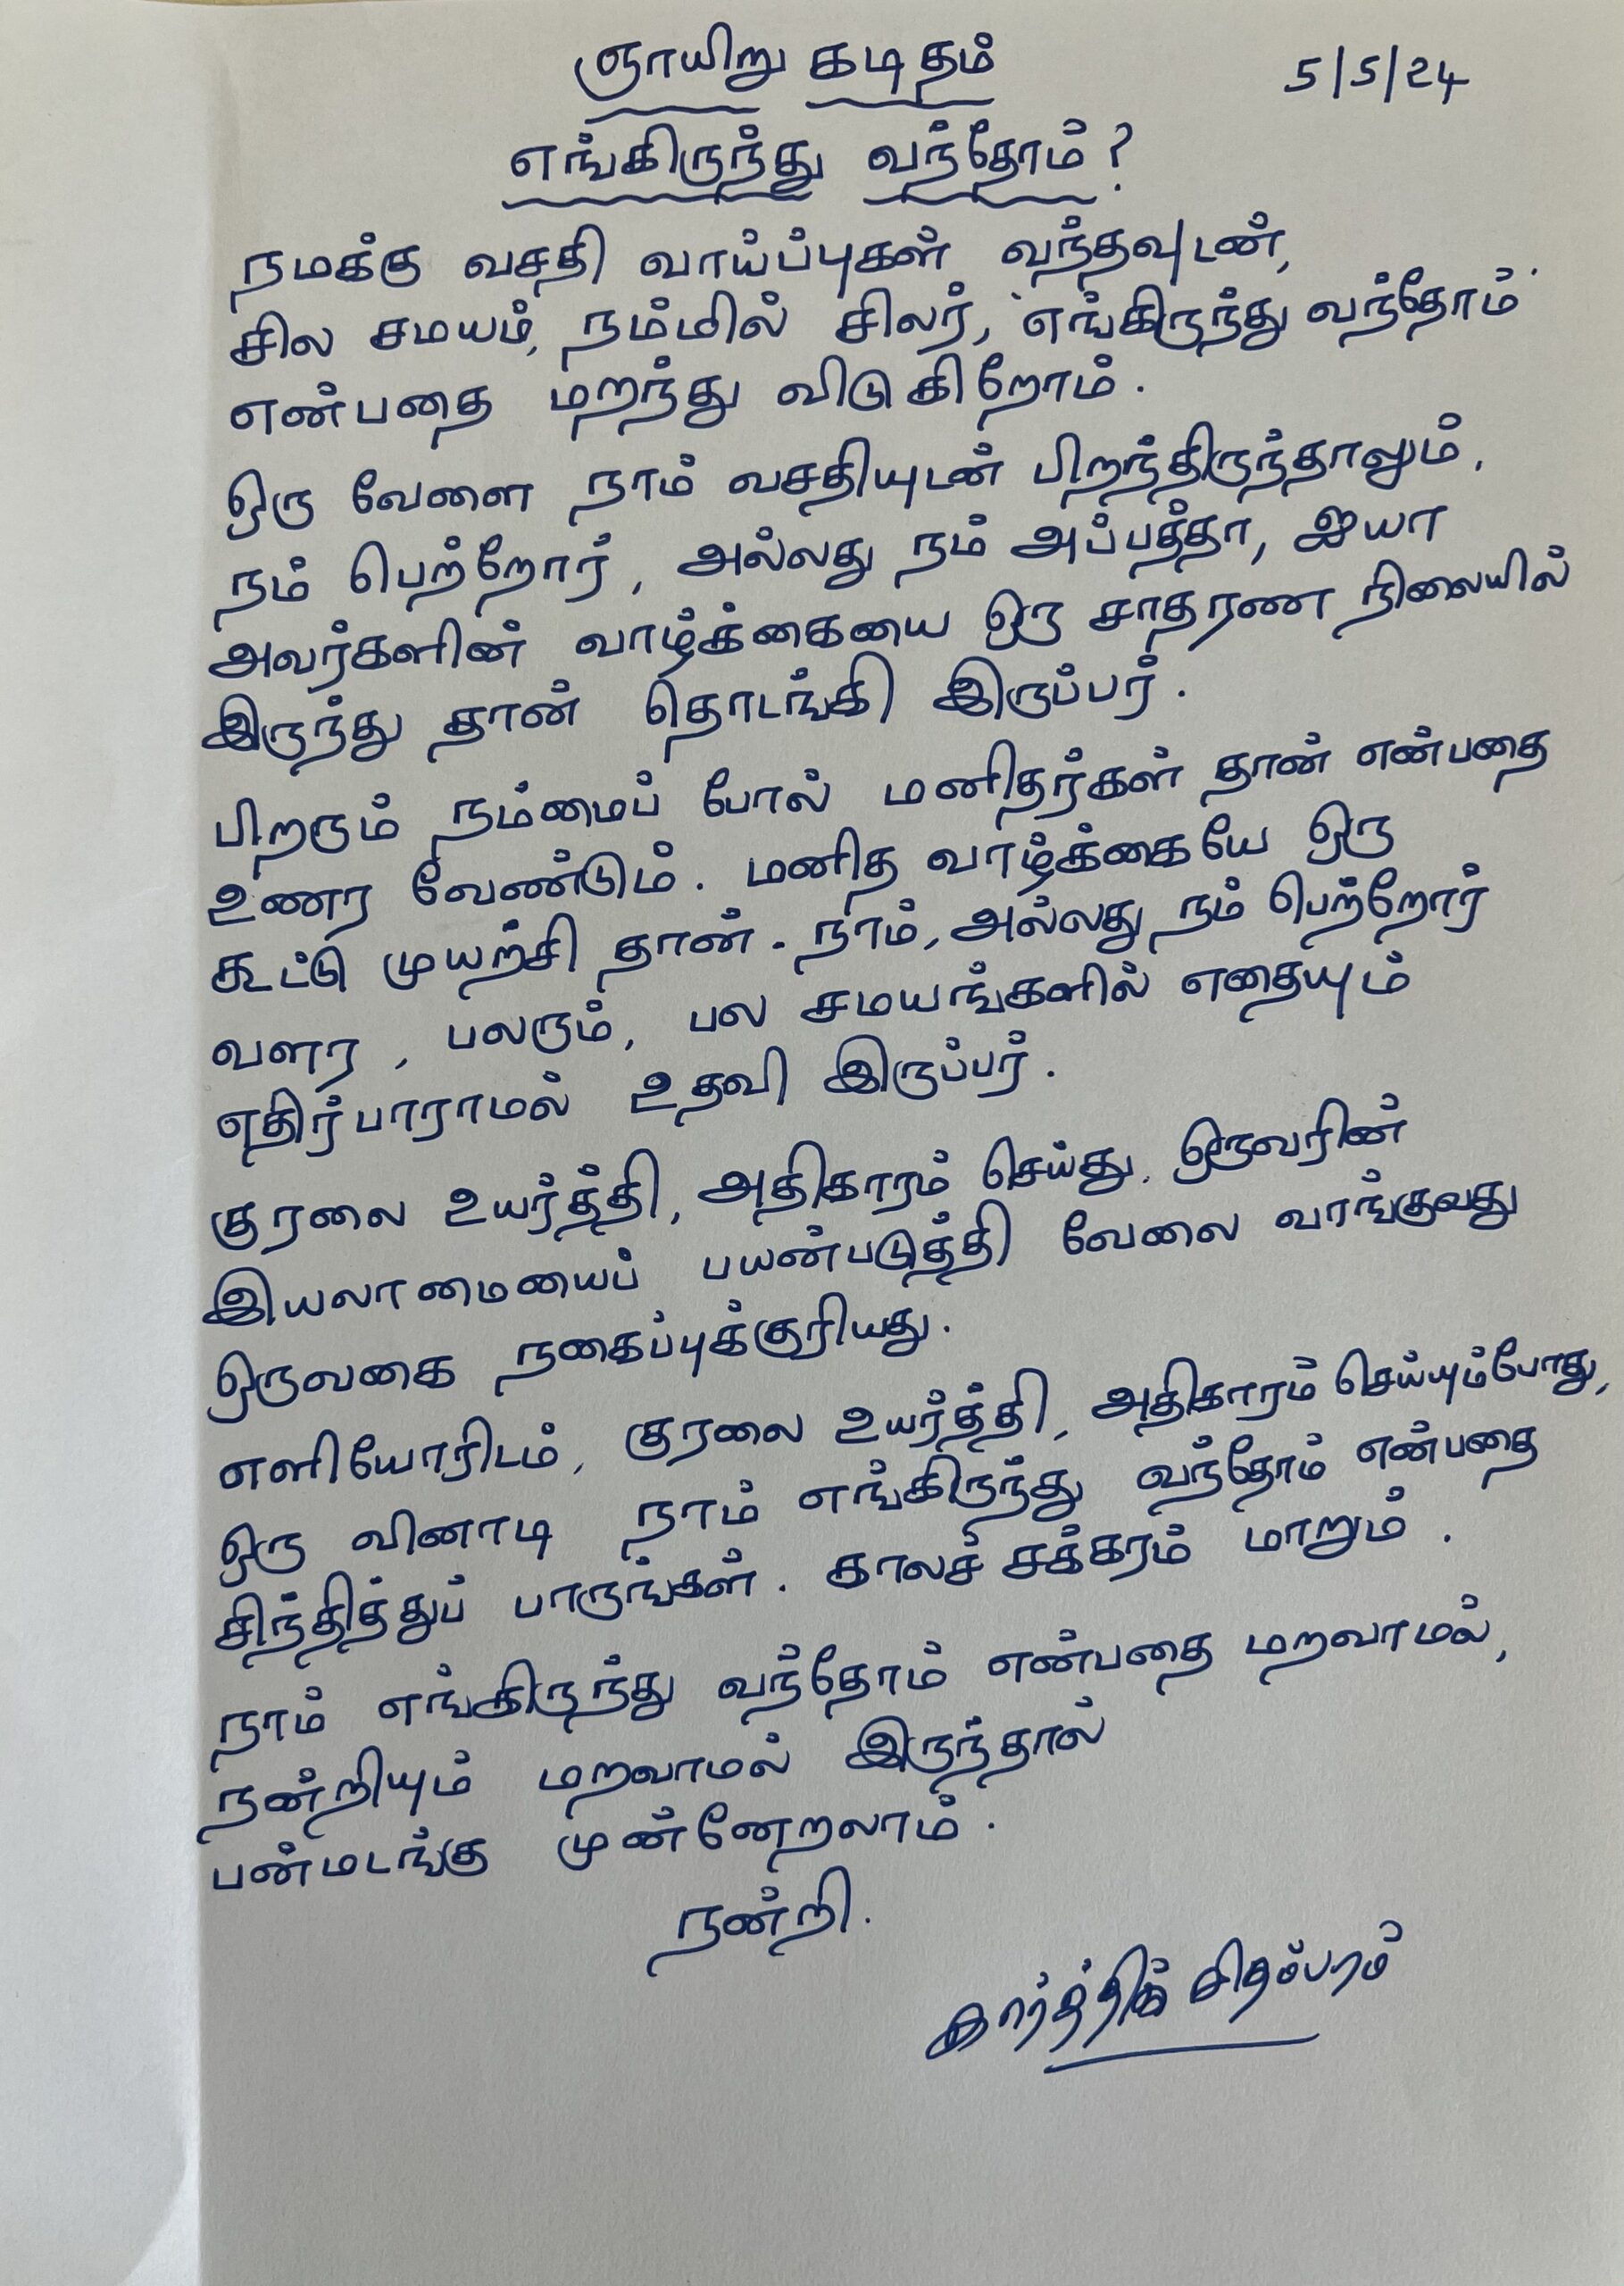 ஞாயிறு கடிதம் 5/5/24
எங்கிருந்து வந்தோம்?
நமக்கு வசதி வாய்ப்புகள் வந்தவுடன்,
சில சமயம், நம்மில் சிலர், 'எங்கிருந்து வந்தோம்'
என்பதை மறந்து விடுகிறோம்.
ஒரு வேளை நாம் வசதியுடன் பிறந்திருந்தாலும்,
நம் பெற்றோர், அல்லது நம் அப்பத்தா, ஐயா
அவர்களின் வாழ்க்கையை ஒரு சாதரண நிலையில்
இருந்து தான் தொடங்கி இருப்பர்.
பிறரும் நம்மைப் போல் மனிதர்கள் தான் என்பதை
உணர வேண்டும். மனித வாழ்க்கையே ஒரு
கூட்டு முயற்சி தான். நாம், அல்லது நம் பெற்றோர்
வளர, பலரும், பல சமயங்களில் எதையும்
எதிர்பாராமல் உதவி இருப்பர்.
குரலை உயர்த்தி, அதிகாரம் செய்து, ஒருவரின்
இயலாமையைப் பயன்படுத்தி வேலை வாங்குவது
ஒருவகை நகைப்புக்குரியது.
எளியோரிடம், குரலை உயர்த்தி, அதிகாரம் செய்யும்போது,
ஒரு வினாடி நாம் எங்கிருந்து வந்தோம் என்பதை
சிந்தித்துப் பாருங்கள். காலச் சக்கரம் மாறும்.
நாம் எங்கிருந்து வந்தோம் என்பதை மறவாமல்,
நன்றியும் மறவாமல் இருந்தால்
பன்மடங்கு முன்னேறலாம்.
நன்றி.
கார்த்திக் சிதம்பரம்